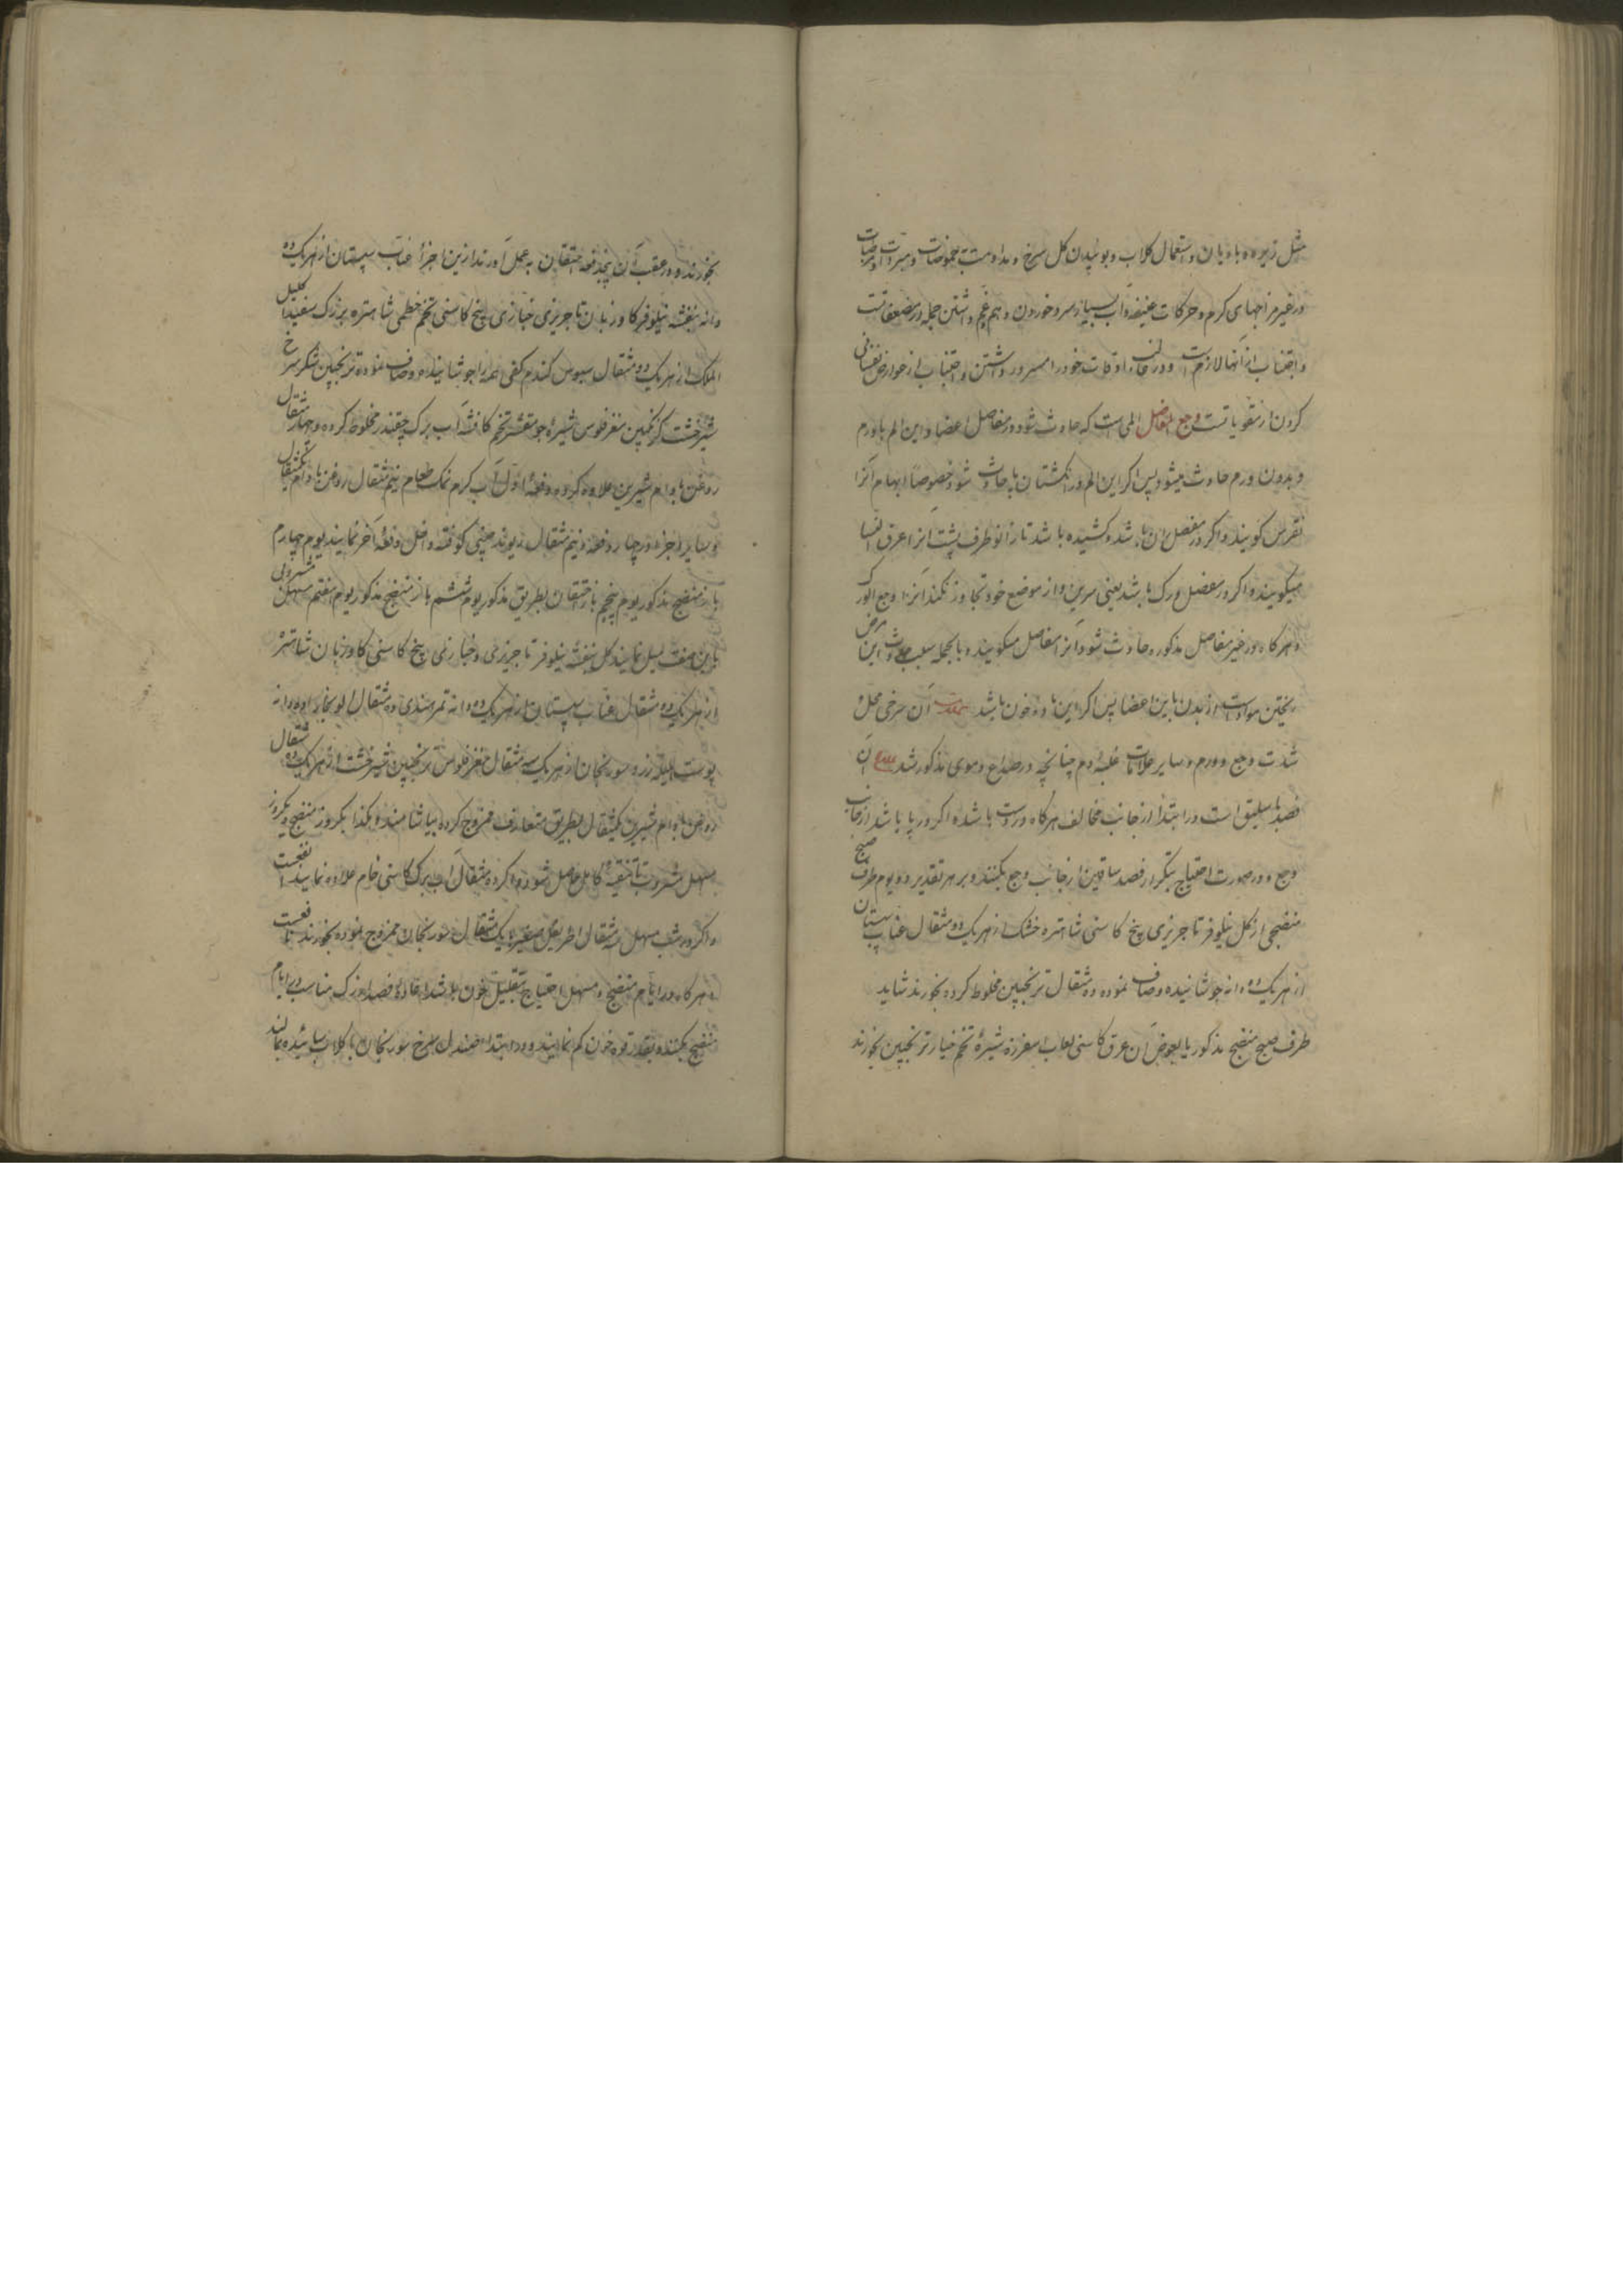 مثل زیره و بادیان و استعمال کلاب و بوئیدن کل سرخ و مداومت بحموضات و مبردات و مرطبات
در غیر مزاجهای کرم و حرکات عنیفه و آب بسیار سرد خوردن و هم غم داشتن جمله در مضعفاتست
و اجتناب از آنها لازمست و در اوقات خود را مسرور داشتن و اجتناب از عوارض نفسانی
کردن از مقویاتست وجع المفاصل المی است که حادث شود در مفاصل اعضا و این الم با ورم
و بدون ورم حادث میشود پس اکر این الم در انکشتان پا حادث شود خصوصا ابهام آنرا
نقرس کویند و اکر در مفصل ران باشد و کشیده باشد تا زانو طرف پشت آنرا عرق النسا
میکویند و اکر در مفصل ورک باشد یعنی سرین و از موضع خود تجاوز نکند آنرا وجع الورک
و هر کاه در غیر مفاصل مذکوره حادث شود آنرا مفاصل میکویند و بالجمله سبب حدوث این مرض
ریختن مواد است از بدن باین اعضا پس اکر این ماده خون باشد علامت آن سرخی محل و
شدت وجع و ورم و سایر علامات غلبه دم چنانچه در صداع دموی مذکور شد علاج آن
فصد باسلیق است در ابتدا از جانب مخالف هر کاه در دست باشد و اکر در پا باشد از جانب
وجع و در صورت احتیاج بتکرار فصد صافین از جانب وجع بکنند و بر هر تقدیر دو یوم طرف صبح
منضجی از کل نیلوفر تاجریزی بیخ کاسنی شاهتره خشک از هر یک دو مثقال عناب سپستان
از هر یک ده دانه جوشانیده و صاف نموده ده مثقال ترنجبین مخلوط کرده بخورند شاید
طرف صبح منضج مذکور یا بعوض آن عرق کاسنی لعاب اسفرزه شیره تخم خیار ترنجبین بخورند
بخورند و در عقب آن پنجدفعه احتقان به عمل آورند ازین اجزا عناب سپستان از هر یک ده
دانه بنفشه نیلوفر کاوزبان تاجریزی خبازی بیخ کاسنی تخم خطمی شاهتره بزرک سفید اکلیل
الملک از هر یک دو مثقال سبوس کندم کفی همه را جوشانیده و صاف نموده ترنجبین شکر سرخ
شیرخشت کزنکبین مغز فلوس شیره جو مقشر تخم کافشه آب برک چقندر مخلوط کرده و چهار مثقال
روغن بادام شیرین علاوه کرده و دفعه اول آب کرم نمک طعام نیم مثقال روغن بادام یکمثقال
و سایر اجزا در چهار دفعه و نیم مثقال ریوند چینی کوفته داخل دفعه آخر نمایند یوم چهارم
باز منضج مذکور یوم پنجم باز احتقان بطریق مذکور یوم ششم باز منضج مذکور یوم هفتم مسهل مشروبی
باین صفت میل نمایند کل بنفشه نیلوفر تاجریزی و خبازی بیخ کاسنی کاوزبان شاهتره
از هر یک دو مثقال عناب سپستان از هر یک ده دانه تمر هندی ده مثقال آلو بخارا ده دانه
پوست هلیله زرد سورنجان از هر یک سه مثقال مغز فلوس ترنجبین شیرخشت از هر یک ده مثقال
روغن بادام شیرین یکمثقال بطریق متعارف ممزوج کرده بیاشامند و هکذا یکروز منضج و یکروز
مسهل مشروب تا تنقیه کامل حاصل شود و اکر ده مثقال آب برک کاسنی خام علاوه نمایند نفعست
و اکر در شب مسهل سه مثقال اطریفل صغیر با یک مثقال سورنجان ممزوج نموده بخورند نافعست
و هر کاه در ایام منضج و مسهل احتیاج بتقلیل خون باشد اعاده فصد از رک مناسب در ایام
منضج بکنند و بقدر قوه خون کم نمایند و در ابتدا صندل سرخ سورنجان با کلاب سائیده بمالند